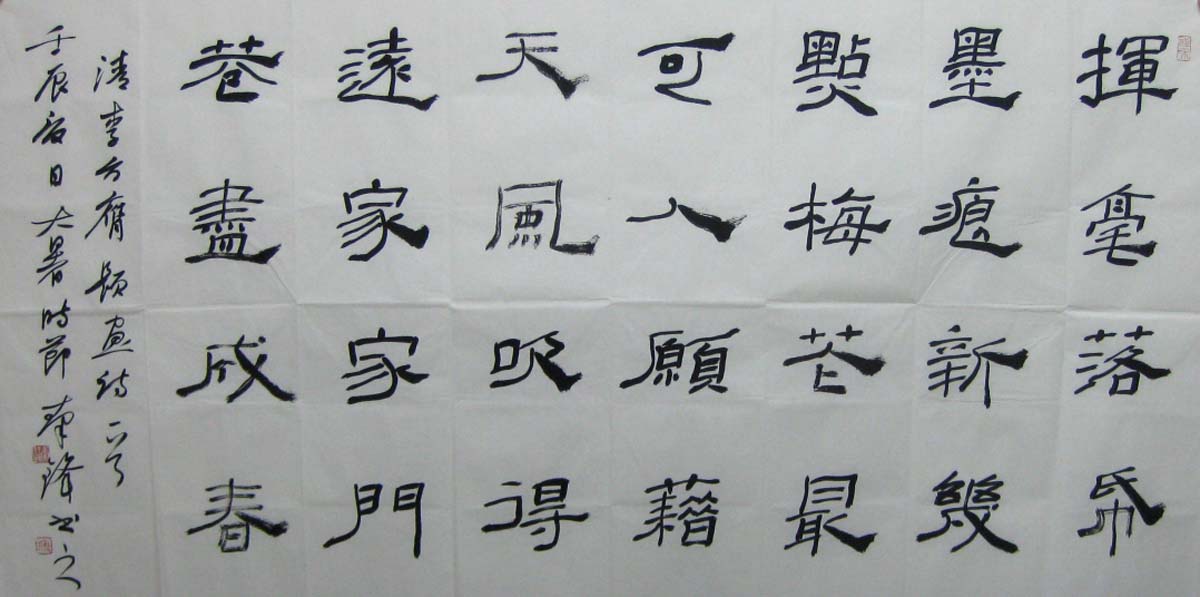 揮毫落帋
墨痕新幾
點梅花最
可人願藉
天風吹得
遠家家門
巷盡成春
清李方膺題畫詩一首
壬辰夏日大暑時節 鋒书之